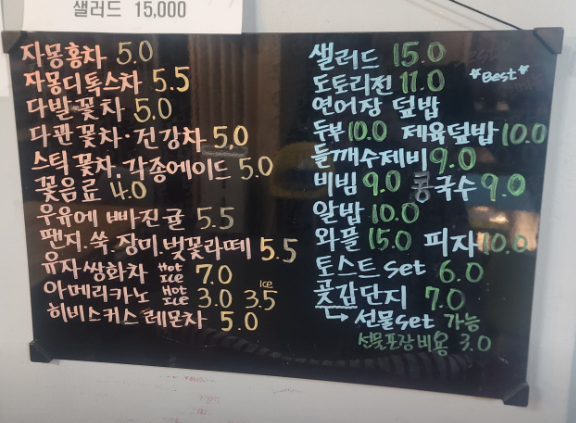 샐러드 15,000
자몽홍차 5.0
자몽디톡스차 5.5
다발꽃차 5.0
다관꽃차·건강차 5,0
스틱꽃차. 각종에이드 5.0
꽃음료 4.0
우유에 빠진귤 5.5
팬지.쑥.장미.벚꽃라떼 5.5
유자쌍화차 Hot ICE 7.0
아메리카노 Hot ICE 3.0 ice 3.5
히비스커스 레몬차 5.0
샐러드 15.0
도토리전 11.0 *Best*
연어장 덮밥
두부 10.0 제육덮밥 10.0
들깨수제비 9.0
비빔 9.0 콩국수 9.0
알밥 10.0
와플 15.0 피자 10.0
토스트 set 6.0
곶감단지 7.0
↳ 선물set 가능
선물포장비용 3.0